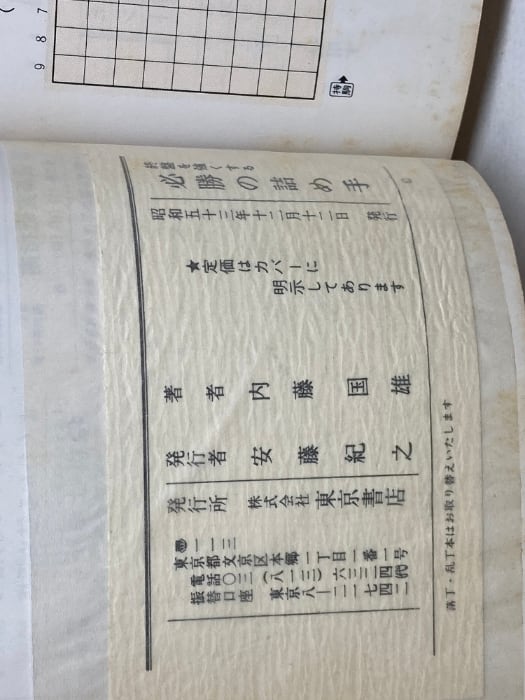 7
8
9
持駒
終盤を強くする
必勝の詰め手
昭和五十三年十二月十二日 発行
★定価はカバーに
明示してあります
著者 内藤国雄
発行者 安藤紀之
発行所 株式会社東京書店
〠一一三
東京都文京区本郷一丁目一番一号
電話〇三(八一三)
振替口座 東京八―二一七四二
落丁・乱丁本はお取り替えいたします